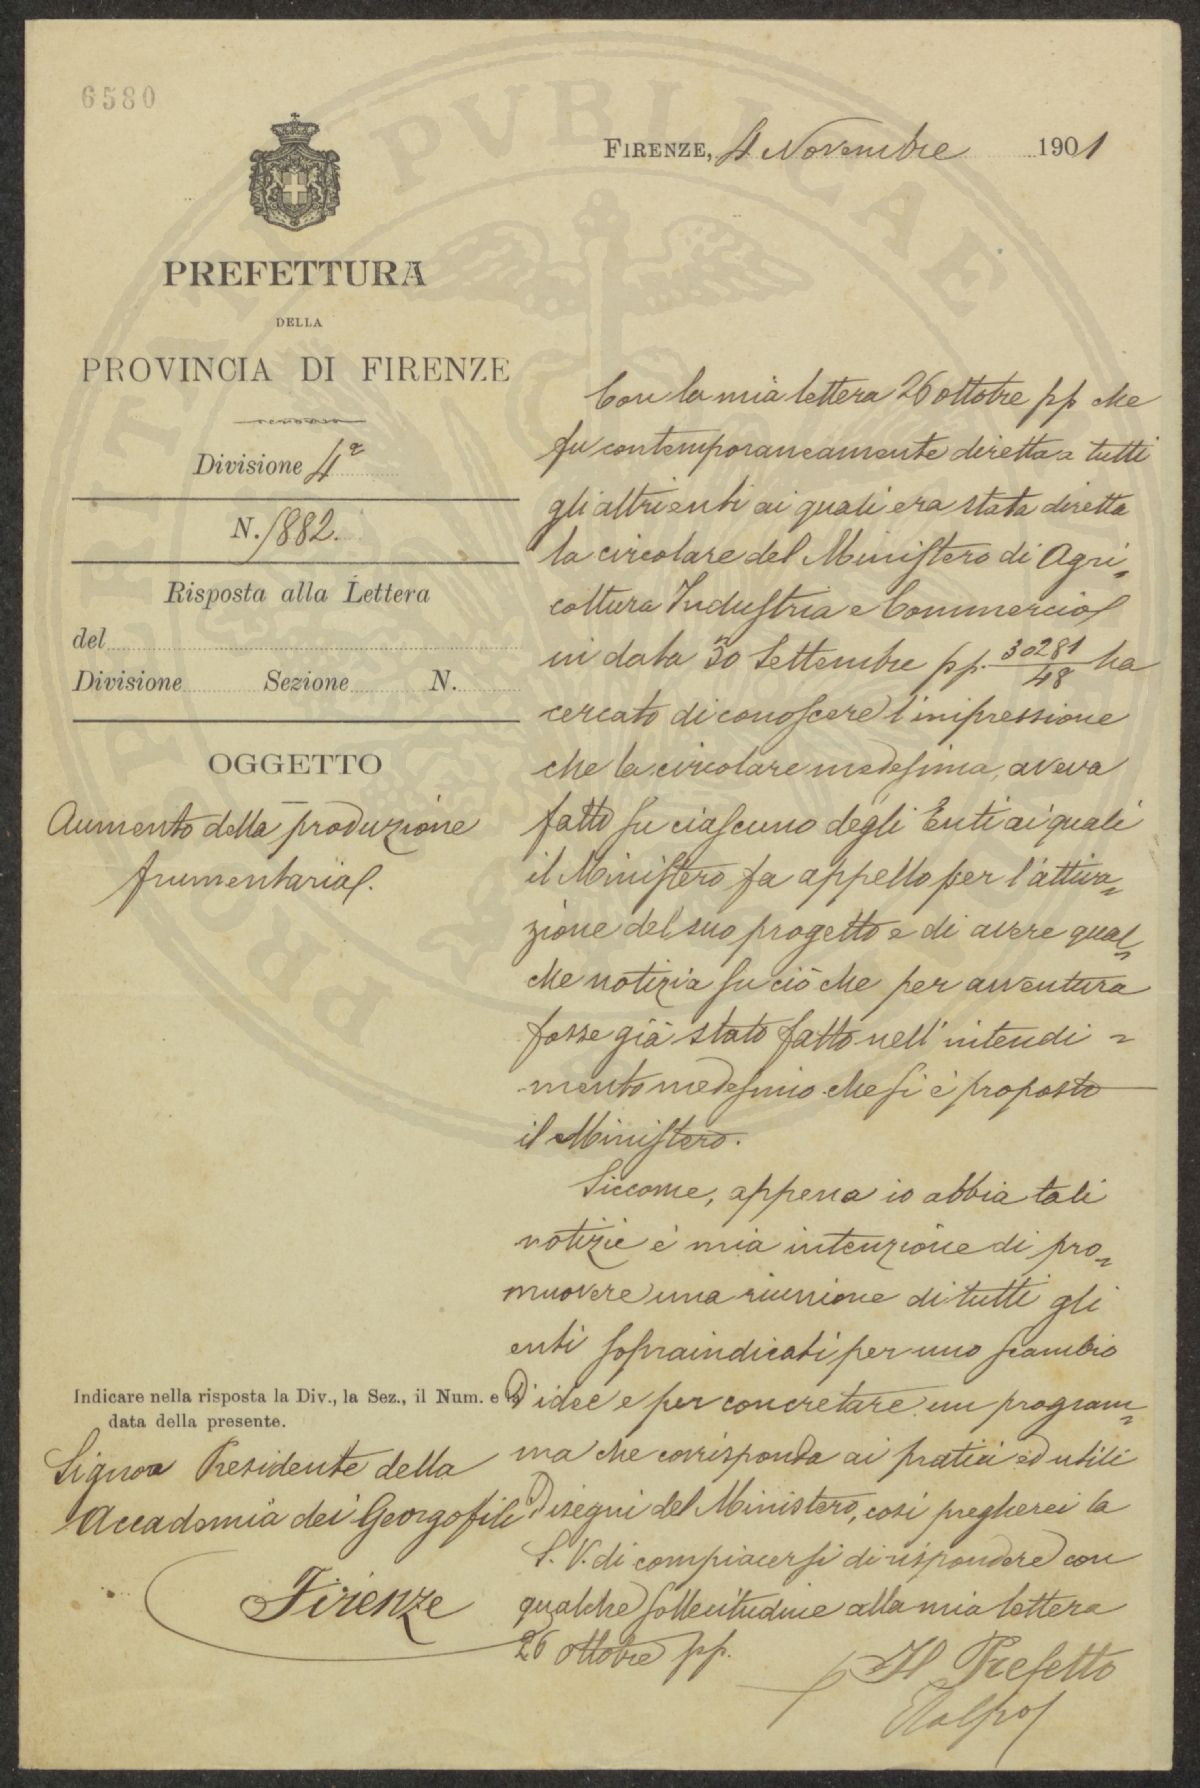 6580
FIRENZE, 4 Novembre 1901
PREFETTURA
DELLA
PROVINCIA DI FIRENZE
Divisione 4ª
N. 1882.
Risposta alla Lettera
del
Divisione Sezione N.
OGGETTO
Aumento della produzione
frumentaria.
Con la mia lettera 26 ottobre pp che
fu contemporaneamente diretta a tutti
gli altri enti ai quali era stata diretta
la circolare del Ministero di Agri=
coltura Industria e Commercio
in data 30 Settembre pp. 30281/48 ha
cercato di conoscere l'impressione
che la circolare medesima, aveva
fatto su ciascuno degli Enti ai quali
il Ministero fa appello per l'attiva=
zione del suo progetto e di avere qual=
che notizia su ciò che per avventura
fosse già stato fatto nell'intendi=
mento medesimo che si è proposto
il Ministero.
Siccome, appena io abbia tali
notizie è mia intenzione di pro=
muovere una riunione di tutti gli
enti sopraindicati per uno scambio
d'idee e per concretare un program=
ma che corrisponda ai pratici ed utili
disegni del Ministero, così pregherei la
S. V. di compiacersi di rispondere con
qualche sollecitudine alla mia lettera
26 ottobre pp.
Il Prefetto
Indicare nella risposta la Div., la Sez., il Num. e la
data della presente.
Signor Presidente della
Accademia dei Georgofili
Firenze
PVBLICAE